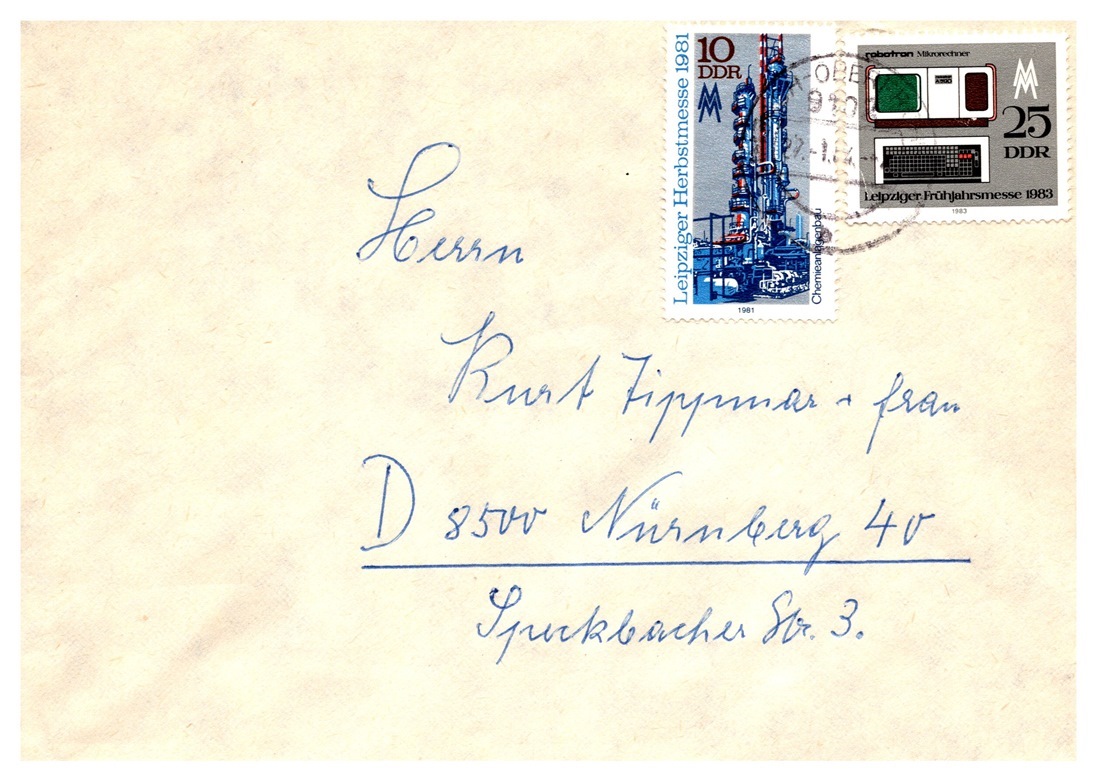 10
DDR
Leipziger Herbstmesse 1981
Chemieanlagenbau
1981
robotron Mikrorechner
25
DDR
Leipziger Frühjahrsmesse 1983
1983
Herrn
Kurt Tippmar + Frau
D 8500 Nürnberg 40
Speckbacher Str. 3.